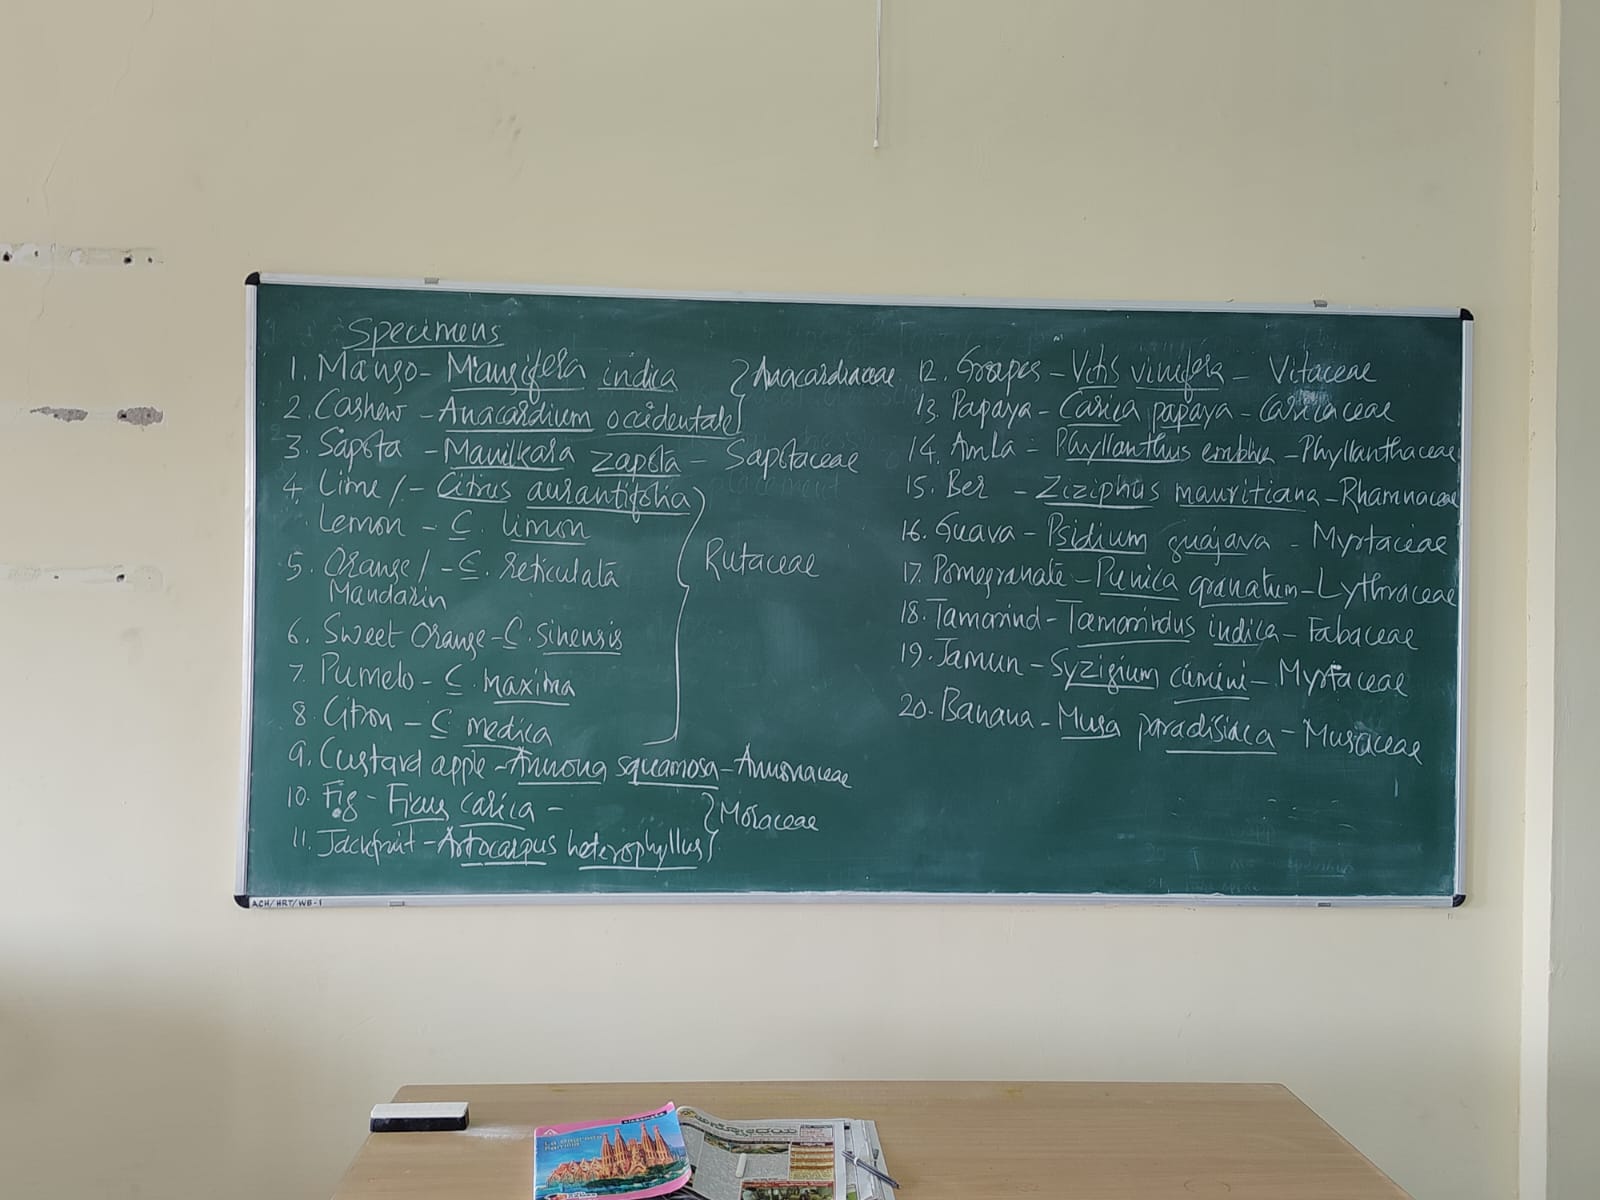 Specimens
1. Mango - Mangifera indica } Anacardiaceae
2. Cashew - Anacardium occidentale
3. Sapota - Manilkara zapota - Sapotaceae
4. Lime / - Citrus aurantifolia
Lemon - C. limon
5. Orange / - C. reticulata } Rutaceae
Mandarin
6. Sweet Orange - C. sinensis
7. Pumelo - C. maxima
8. Citron - C medica
9. Custard apple - Annona squamosa - Annonaceae
10. Fig - Ficus carica - } Moraceae
11. Jackfruit - Artocarpus heterophyllus
12. Grapes - Vitis vinifera - Vitaceae
13. Papaya - Carica papaya - Caricaceae
14. Amla - Phyllanthus emblica - Phyllanthaceae
15. Ber - Ziziphus mauritiana - Rhamnaceae
16. Guava - Psidium guajava - Myrtaceae
17. Pomegranate - Punica granatum - Lythraceae
18. Tamarind - Tamarindus indica - Fabaceae
19. Jamun - Syzigium cumini - Myrtaceae
20. Banana - Musa paradisiaca - Musaceae
ACH/HRT/WB-1
La Sagrada